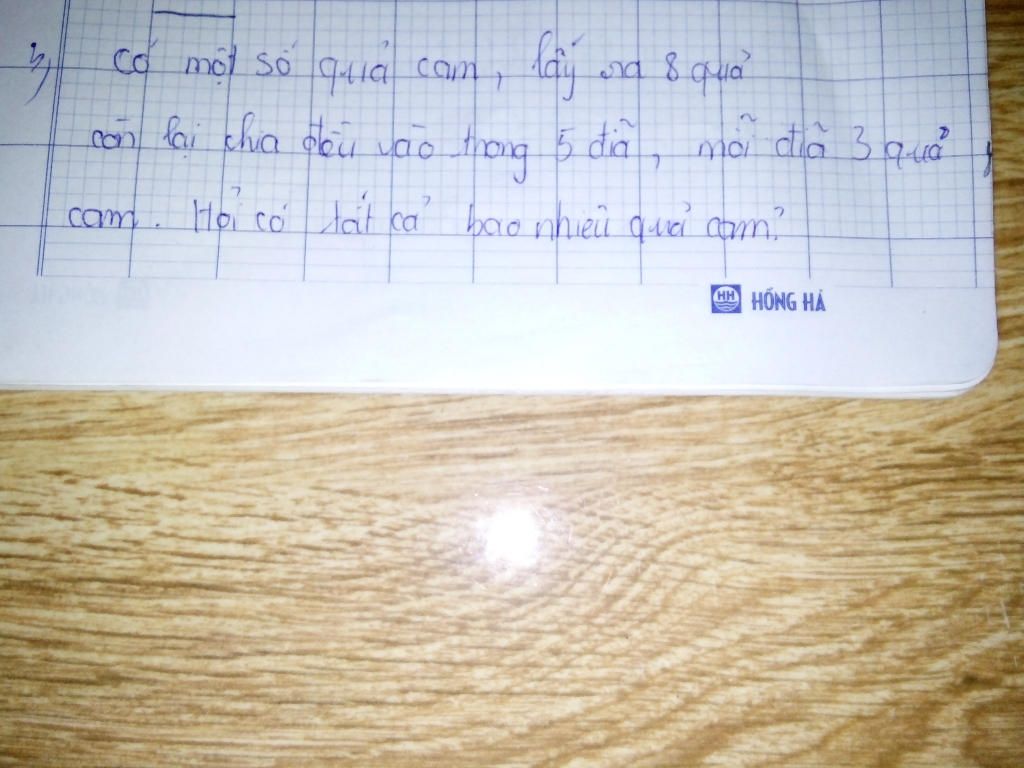 3, Có một số quả cam, lấy ra 8 quả
còn lại chia đều vào trong 5 đĩa, mỗi đĩa 3 quả
cam. Hỏi có tất cả bao nhiêu quả cam?
HH HỒNG HÀ